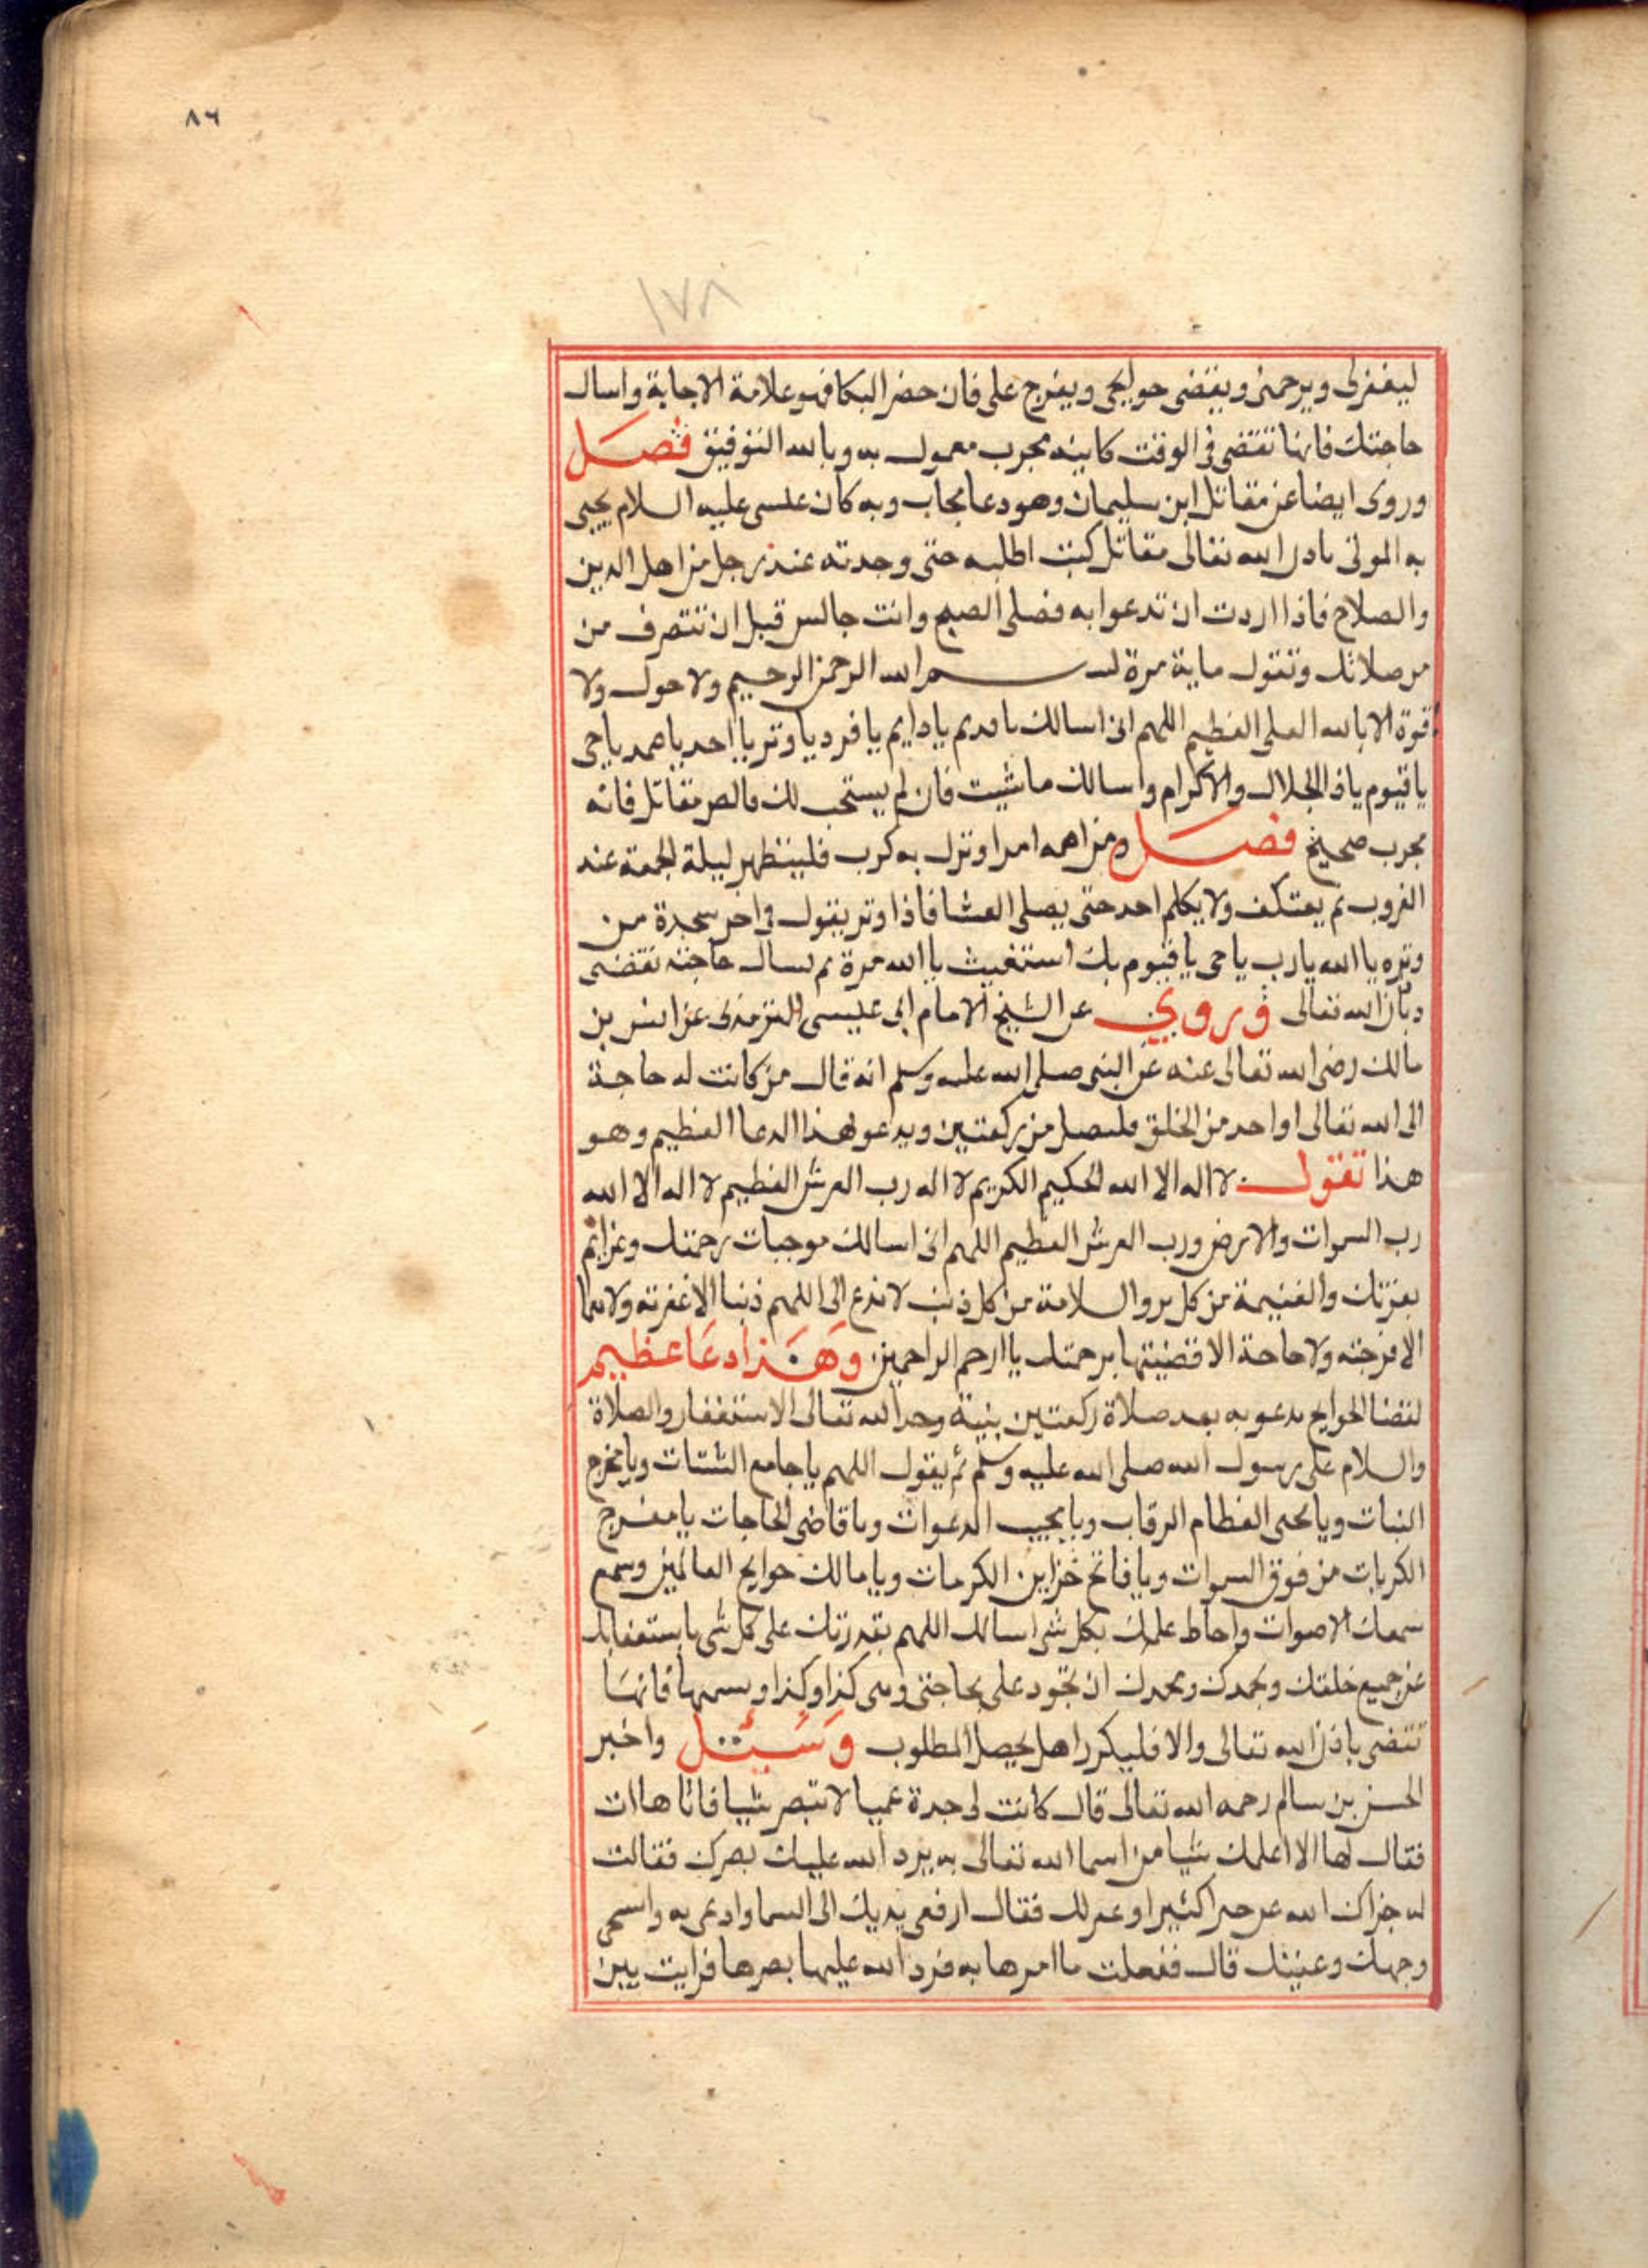 ٨٦
١٧٨
ليغفرلى ويرحمنى ويقضى حوايجى ويفرج على فان حضر البكا فهو علامة الاجابة واسال
حاجتك فانها تقتضى فى الوقت كاينه مجرب معمول به وبالله التوفيق فصل
وروى ايضا عن مقاتل ابن سليمان وهو دعا مجاب وبه كان عيسى عليه السلام يحيى
به الموتى باذن الله تعالى مقاتل كنت اطلبه حتى وجدته عند رجل من اهل الدين
والصلاح فاذا اردت ان تدعوا به فصلى الصبح وانت جالس قبل ان تتصرف من
من صلاتك وتقول ماية مرة بسم الله الرحمن الرحيم ولا حول ولا
قوة الا بالله العلى العظيم اللهم انى اسالك يا قديم يا دايم يا فرد يا وتر يا احد يا صمد يا حى
يا قيوم يا ذا الجلال والاكرام واسالك ما شيت فان لم يستجب لك فالعن مقاتل فانه
مجرب صحيح فصل ومن اهمه امرا ونزل به كرب فليتطهر ليلة الجمعة عند
الغروب ثم يعتكف ولا يكلم احد حتى يصلى العشا فاذا وتر يقول فى اخر سجدة من
وتره يا الله يا رب يا حى يا قيوم بك استغيث يا الله مرة ثم يسال حاجته تقضى
باذن الله تعالى وروى عن الشيخ الامام ابى عيسى الترمذى عن انس بن
مالك رضى الله تعالى عنه عن النبى صلى الله عليه وسلم انه قال من كانت له حاجة
الى الله تعالى او احد من الخلق فليصل من ركعتين ويدعو بهذا الدعا العظيم وهو
هذا تقول لا اله الا الله الحكيم الكريم لا اله رب العرش العظيم لا اله الا الله
رب السموات والارض ورب العرش العظيم اللهم انى اسالك موجبات رحمتك وعزايم
بعزتك والغنيمة من كل بر والسلامة من كل ذنب لا تدع لى اللهم ذنبا الا غفرته ولا هما
الا فرجته ولا حاجة الا قضيتها برحمتك يا ارحم الراحمين وهذا دعا عظيم
لقضا الحوايج يدعو به بعد صلاة ركعتين بنية وحمد الله تعالى الاستغفار والصلاة
والسلام على رسول الله صلى الله عليه وسلم ثم يقول اللهم يا جامع الشتات ويا مخرج
النبات ويا محيى العظام الرقاب ويا مجيب الدعوات ويا قاضى الحاجات يا مفرج
الكربات من فوق السموات ويا فاتح خزاين الكرمات ويا مالك حوايج العالمين وسمع
سمعك الاصوات واحاط علمك بكل شى اسالك اللهم بقدرتك على كل شى باستغنايك
عن جميع خلقك وبحمدك وبمجدك ان تجود على بحاجتى وهى كذا وكذا ويسميها فانها
تقتضى باذن الله تعالى والا فليكررا هل يحصل المطلوب وسئل واخبر
الحسن بن سالم رحمه الله تعالى قال كانت لى جدة عميا لا تبصر شيا فاتاها ات
فقال لها الا اعلمك شيا من اسما الله تعالى به يرد الله عليك بصرك فقالت
له جزاك الله خيرا كثيرا فقال ارفعى يديك الى السما وادعى به وامسحى
وجهك وعينيك قال ففعلت ما امرها به فرد الله عليها بصرها فرايت بين